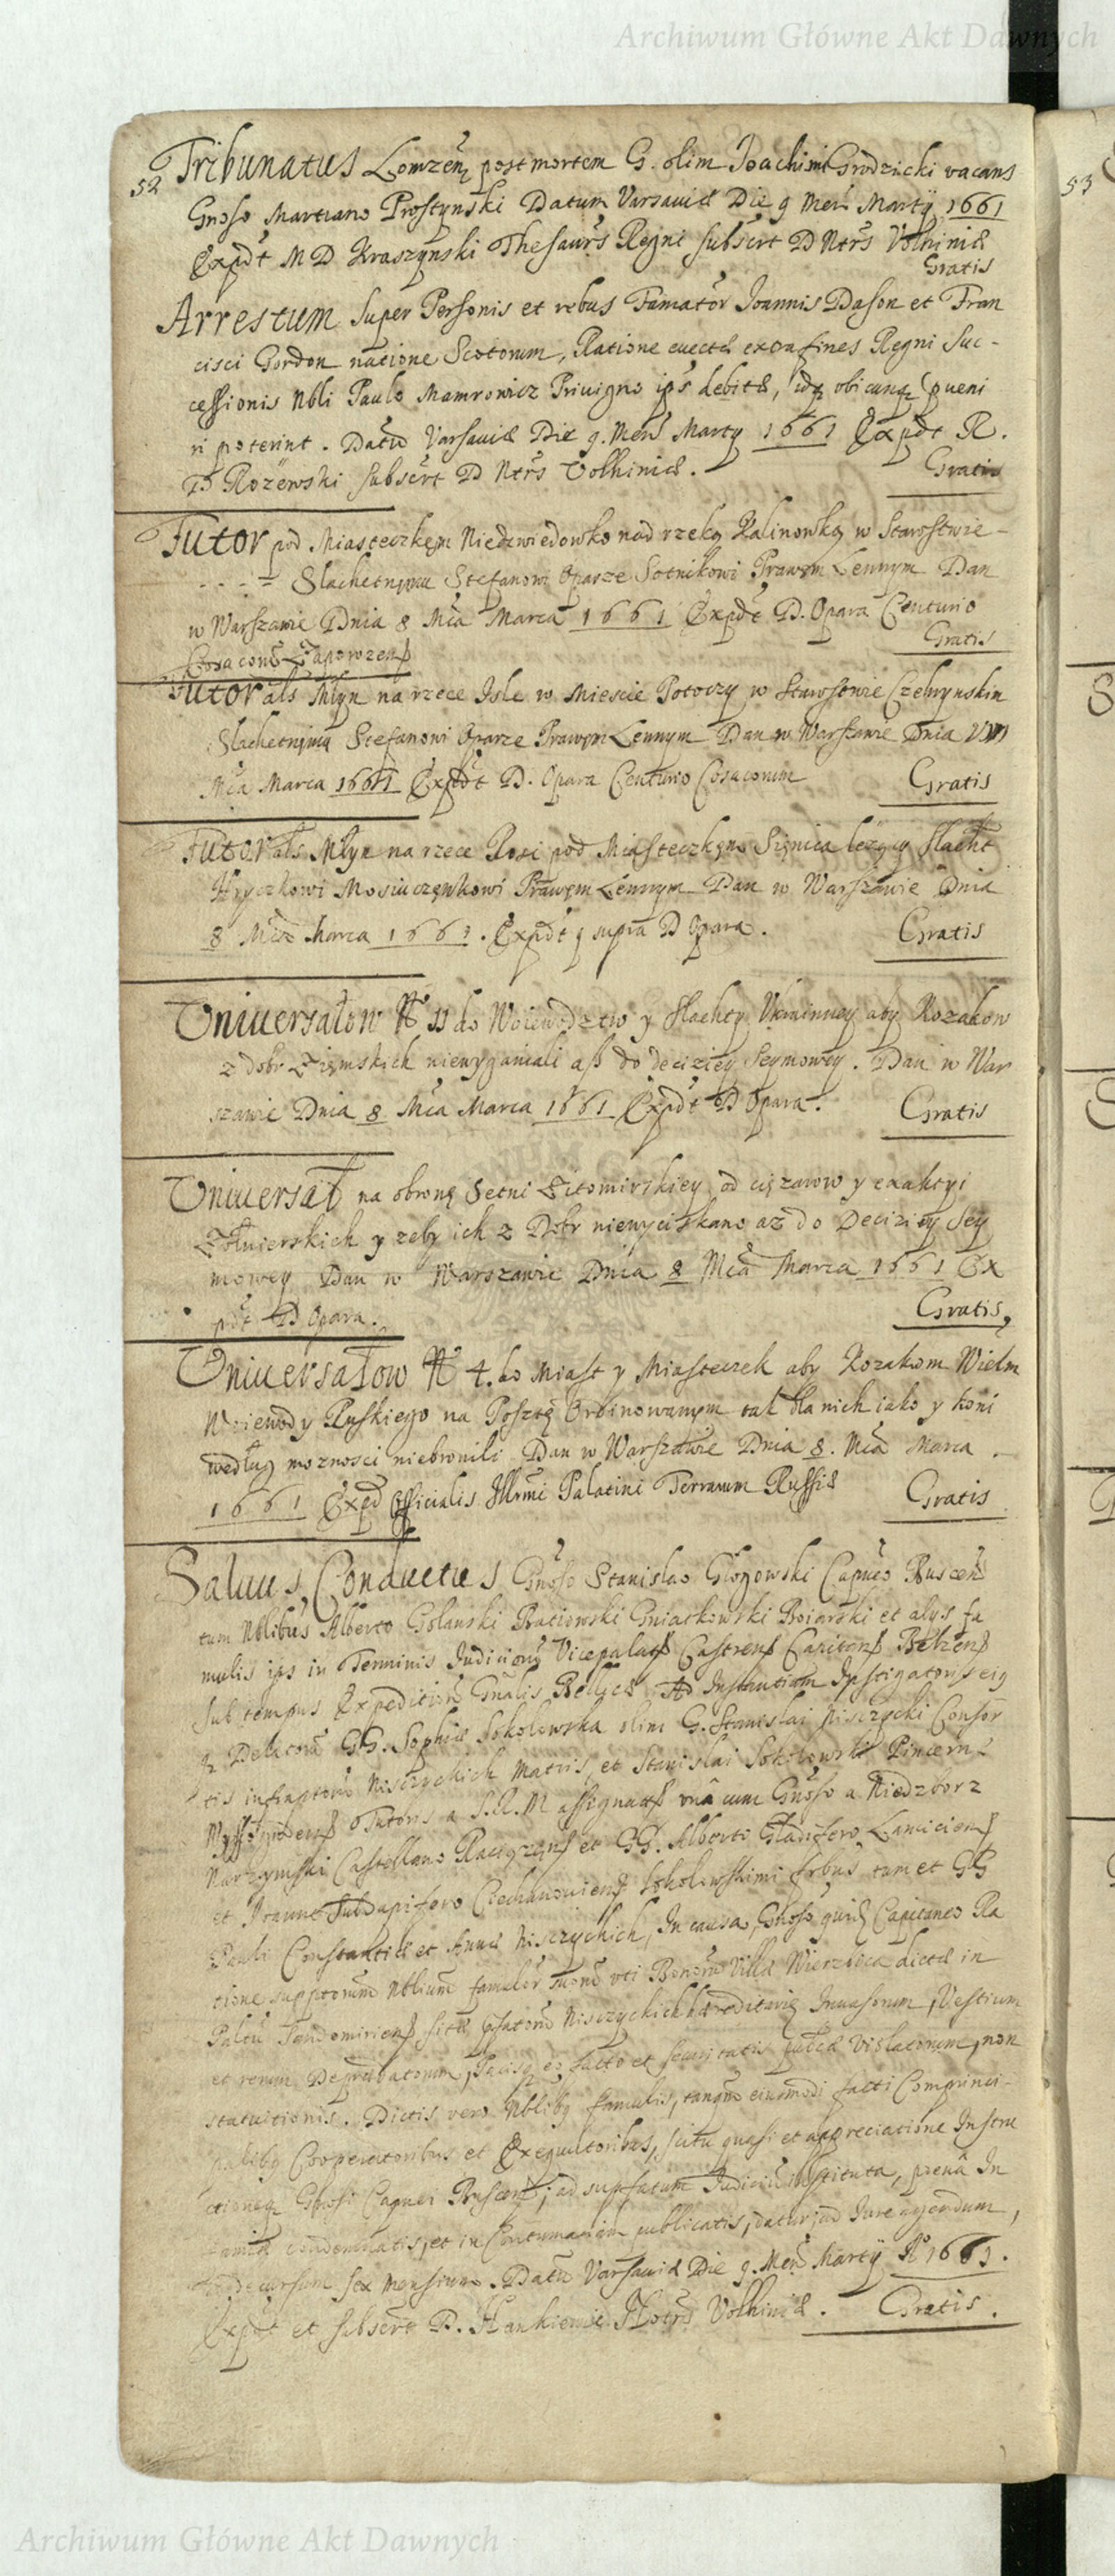 Archiwum Główne Akt Dawnych
52
Tribunatus Lomzen post mortem G. olim Joachimi Grodzicki vacans
Gnoso Martiano Prostynski Datum Varsaviæ Die 9 Men Martÿ 1661
Expdt M D Kraszynski Thesaurs Regni subscrt D Ntrs Volhiniæ
Gratis
Arrestum super Personis et rebus Famator Joannis Dason et Fran
cisci Gordon natione Scotorum, Ratione evectæ extra fines Regni suc-
cessionis Nbli Paulo Mamrowicz Privigno ips debitæ, idq ubicunq pveni
ri poterint. Datu Varsaviæ Die 9. Men Marty 1661 Expdt R.
D Rozewski subscrt D Ntrs Volhiniæ.
Gratis
Futor pod Miasteczkęm Niedzwiedowko nad rzeką Kalinowką w Starostwie-
Slachetnęmu Stefanowi Oparze Sotnikowi Prawęm Lennym Dan
w Warszawie Dnia 8 Mca Marca 1661 Expdt D. Opara Centurio
Cosacorū Zaporozens
Gratis
Futor als Młyn na rzece Isle w Miescie Potoczy w Starostwie Czehrynskim
Slachetnęmu Stefanowi Oparze Prawęm Lennym Dan w Warszawie Dnia VIII
Mca Marca 1661 Expdt D. Opara Centurio Cosacorum
Gratis
Futor als Młyn na rzece Rosi pod Miasteczkęm Sięnica lezący Slacht
Hryczkowi Mosiuczęnkowi Prawęm Lennym Dan w Warszawie Dnia
8 Mca Marca 1661. Expdt q supra D Opara.
Gratis
Uniwersałow No 11 do Woiewodztw y Slachty Ukrainney aby Kozakow
z dobr Zięmskich niewyganiali asz do deciziey Seymowey. Dan w War
szawie Dnia 8 Mca Marca 1661 Expdt D Opara.
Gratis
Uniwersał na obronę Setni Zitomirskiey od ciężarow y exakcyi
Zołnierskich y zeby ich z Dobr niewyciskano az do Deciziey Sey
mowey Dan w Warszawie Dnia 8 Mca Marca 1661 Ex
pdt D Opara.
Gratis,
Uniwersałow No 4. do Miast y Miasteczek aby Kozakom Wielm
Woiewody Ruskiego na Posztę Ordinowanym tak dla nich iako y koni
według moznosci niebronili Dan w Warszawie Dnia 8. Mca Marca.
1661 Expd Officialis Illrmi Palatini Terrarum Russiæ
Gratis
Salvus Conductus Gnoso Stanislao Głogowski Capneo Buscen
tum Nblibus Alberto Golanski Ratiowski Gniatkowski Boiarski et alys fa
mulis ips in Terminis Judiciorū Vicepalats Castrens Capitons Belzens
sub tempus Expeditiōn Gnalis Bellicæ Ad Instantiam Instigatoris eiq
q Delatorū GG. Sophiæ Sokolowska olim G. Stanislai Nisczycki Consor
tis infraptorū Nisczyckich Matris, et Stanislai Sokolowski Pincernæ
Wyssogrodens Tutoris a S.R.M assignats una cum Gnoso a Niedzborz
Narzymski Castellano Raciązens et GG. Alberto Gladifero Lanciciens
et Joanne Subdapifero Ciechanoviens Sokolowskimi frbus tum et GG
Pauli Constantiæ et Annæ Nisczyckich, In causa, Gnoso quidē Capitaneo Ra
tione supptorum Nblium famulor suorū uti Bonorū Villæ Wierzbica dictæ in
Paltu Sendomiriens sitæ psatorū Nisczyckich hæreditariæ Invasorum, Vestium
et rerum Deprædatorum, Pacisq eo facto et securitatis pubcæ Violatorum, non
statuitionis. Dictis vero Nblibq famulis, tanqm eiusmodi facti Comprinci-
palibq Cooperatoribus et Exequutoribus, scitu quasi et appreciatione Instru
ctioneq Gnosi Capnei Buscens, ad supsatum Judiciū instituta, pœna In
famiæ condemnatis, et in Contumaciam publicatis, datur, ad Jure agendum,
decursum sex mensium. Datū Varsaviæ Die 9. Men Martÿ Ao 1661.
Expdt et subscrt D. Hankiewic Notrs Volhiniæ.
Gratis.
53
Archiwum Główne Akt Dawnych